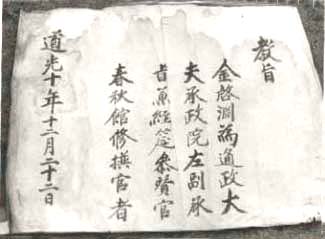 教旨
金啓淵為通政大
夫承政院左副承
旨兼經筵叅贊官
春秋館修撰官者
道光十年十二月二十二日